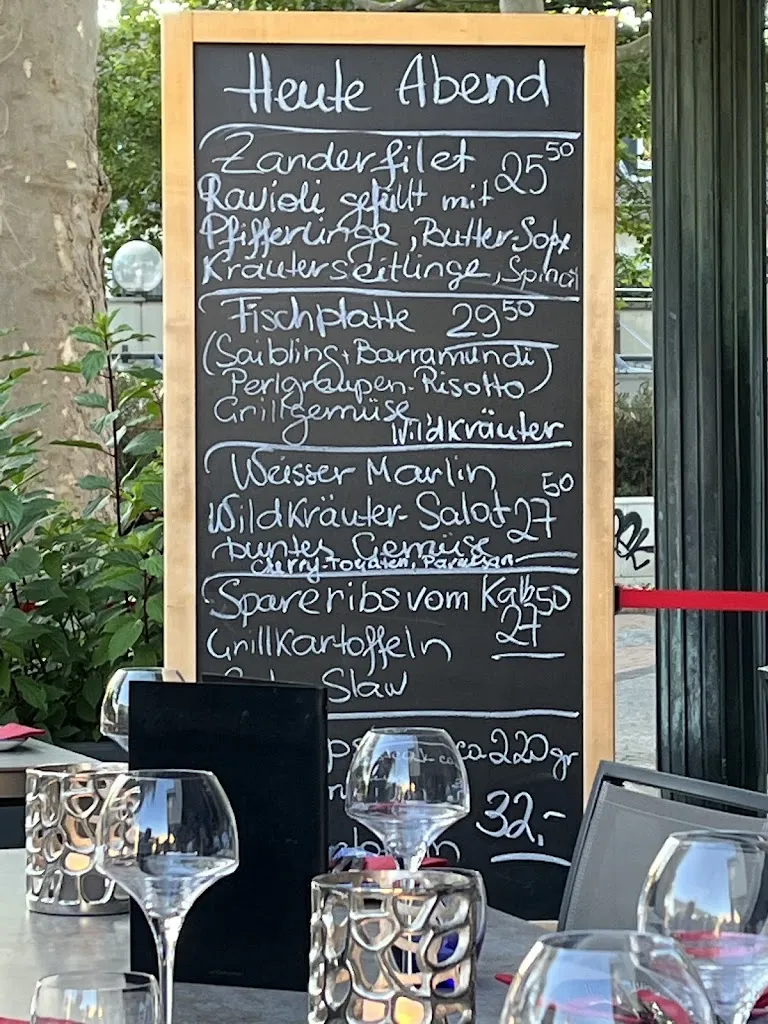 Heute Abend
Zanderfilet 25 50
Ravioli gefüllt mit
Pfifferlinge, Butter-Soße
Kräuterseitlinge, Spinat
Fischplatte 29 50
(Saibling + Barramundi)
Perlgraupen-Risotto
Grillgemüse
Wildkräuter
Weisser Marlin
Wildkräuter-Salat 27 50
buntes Gemüse
Cherry-Tomaten, Parmesan
Spareribs vom Kalb
Grillkartoffeln 27 50
Slaw
ca 220 gr
32,-